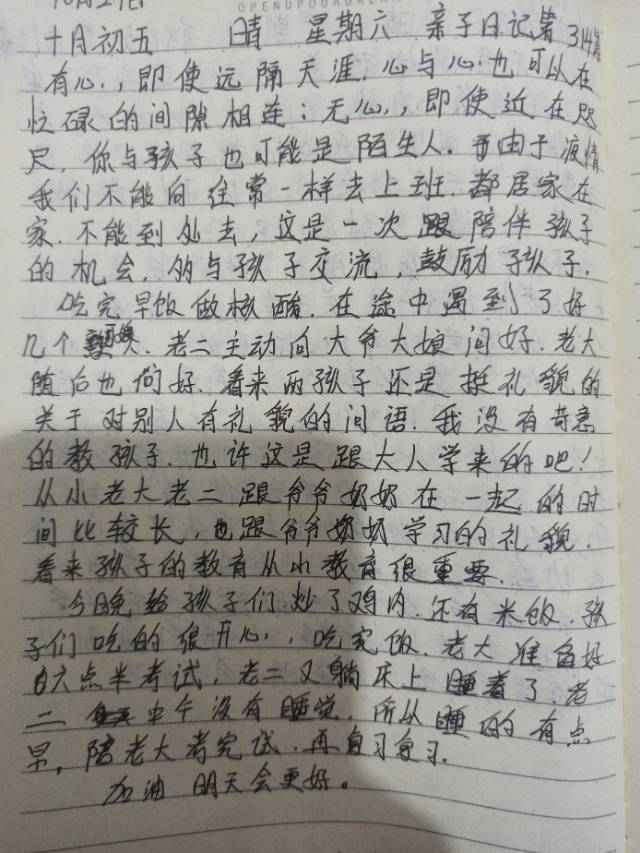 OPENUPYOURDREAM
十月初五 晴 星期六 亲子日记第314篇
有心,即使远隔天涯.心与心也可以在
忙碌的间隙相连;无心,即使近在咫
尺,你与孩子也可能是陌生人.由于疫情
我们不能向往常一样去上班.都居家在
家.不能到处去,这是一次跟陪伴孩子
的机会.多与孩子交流,鼓励孩子.
吃完早饭做核酸.在途中遇到了好
几个.老二主动向大爷大娘问好.老大
随后也问好.看来两孩子还是挺礼貌的
关于对别人有礼貌的问语.我没有苛意
的教孩子.也许这是跟大人学来的吧!
从小老大老二跟爷爷奶奶在一起的时
间比较长,也跟爷爷奶奶学习的礼貌.
看来孩子的教育从小教育很重要.
今晚给孩子们炒了鸡肉.还有米饭.孩
子们吃的很开心,吃完饭.老大准备好
六点半考试,老二又躺床上睡着了老
二中午没有睡觉,所以睡的有点
早,陪老大考完试.再复习复习.
加油 明天会更好。